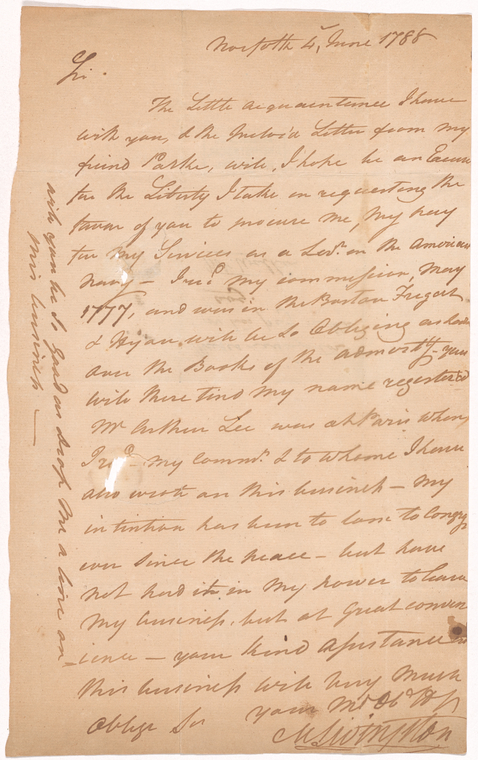 Norfolk 4 June 1788
Sir.
The Little acquaintance I have
with you, & the Inclos'd Letter from my
friend Parke, will, I hope be an Excuse
for the Liberty I take in requesting the
favor of you to procure me, my pay
for my Services as a Led. in the American
Navy - I recd my commission, May
1777, and was in the Boston Fregat
& if you will be so obliging as look
over the Books of the admorty you
will there find my name registered
Mr. Arthur Lee was at Paris when
I recd my Commn. & to whome I have
also wrote on this business - my
intintion has been to come to Congs
ever since the peace - but have
not had it in my power to leave
my business, but at great conven
ience - your kind assistance in
this business will very much
oblige Sir your Mt. Ob. Hs
M Livingston
will you be so good as drop me a line on
this business -